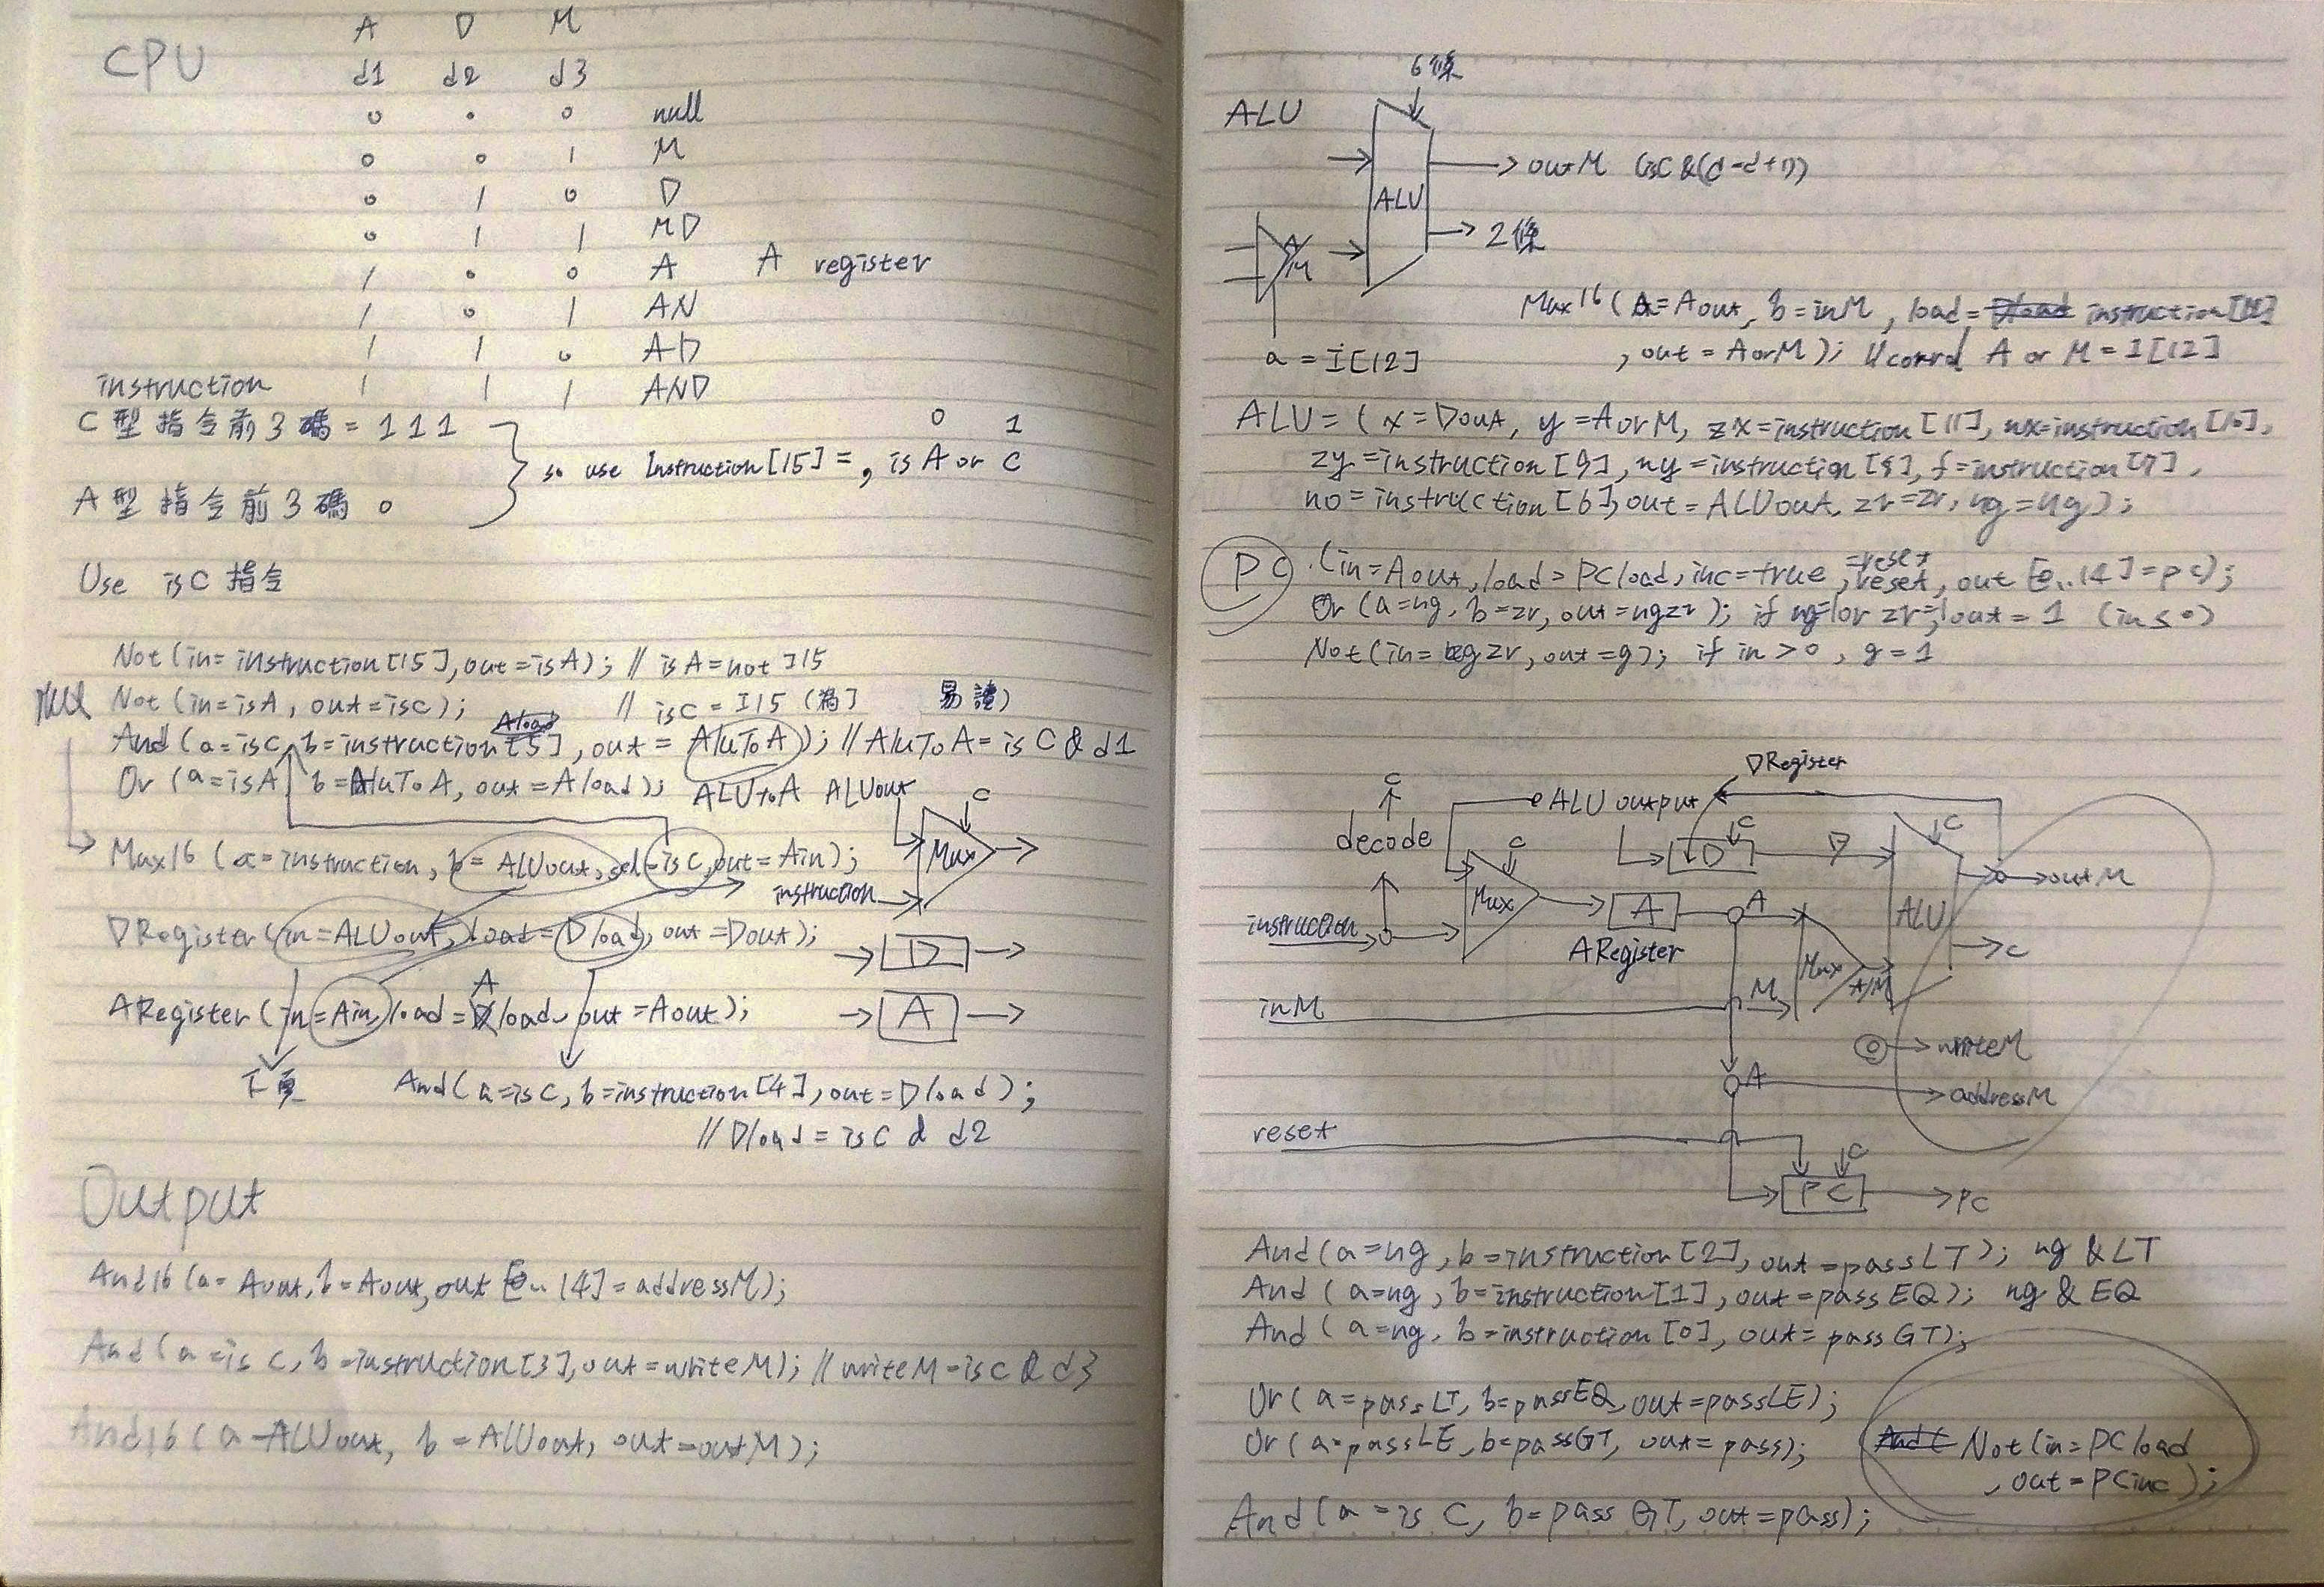 CPU
A D M
d1 d2 d3
0 0 0 null
0 0 1 M
0 1 0 D
0 1 1 MD
1 0 0 A A register
1 0 1 AN
1 1 0 AD
1 1 1 AND
instruction
C型指令前3碼=111
A型指令前3碼0
0 1
so use Instruction[15]=, is A or C
Use isC指令
Not(in=instruction[15],out=isA); // isA=not I15
Not(in=isA, out=isC); // isC=I15 (為] 易讀)
Aload
And(a=isC, b=instruction[5], out=AluToA)); //AluToA=is C & d1
Or (a=isA b=AluToA, out=Aload); ALUtoA ALUout C
Mux16 (a=instruction, b=ALUout, sel=isC, out=Ain); Mux
instruction
DRegister(in=ALUout, load=Dload, out=Dout); D
A
ARegister(in=Ain, load=load, out=Aout); A
下頁 And(a=isC, b=instruction[4], out=Dload);
//Dload=isC d d2
Output
And16(a=Aout, b=Aout, out [0..14]=addressM);
And(a=isC, b=instruction[3], out=writeM); //writeM=isC & d3
And16(a=ALUout, b=ALUout, out=outM);
6條
ALU
outM (isC&(d-d+1))
ALU
2條
A/M
a=I[12]
Mux16(a=Aout, b=inM, load=Dload instruction[12]
, out=AorM); // A or M=I[12]
ALU=(x=Dout, y=AorM, zx=instruction[11], nx=instruction[10],
zy=instruction[9], ny=instruction[8], f=instruction[7],
no=instruction[6], out=ALUout, zr=zr, ng=ng);
=reset
PC.(in=Aout, load=PCload, inc=true, reset, out[0..14]=pc);
Or(a=ng, b=zr, out=ngzr); if ng=1or zr=1out=1 (in≤0)
Not(in=ngzr, out=g); if in>0, g=1
DRegister
C
ALU output
decode
C
C
D
D
C
outM
Mux
A
A
ALU
instruction
ARegister
C
Mux
A/M
M
inM
writeM
A
addressM
reset
C
PC
PC
And(a=ng, b=instruction[2], out=passLT); ng & LT
And(a=ng, b=instruction[1], out=passEQ); ng & EQ
And(a=ng, b=instruction[0], out=passGT);
Or(a=passLT, b=passEQ, out=passLE);
Or(a=passLE, b=passGT, out=pass);
And( Not(in=PCload
, out=PCinc);
And(a=isC, b=passGT, out=pass);